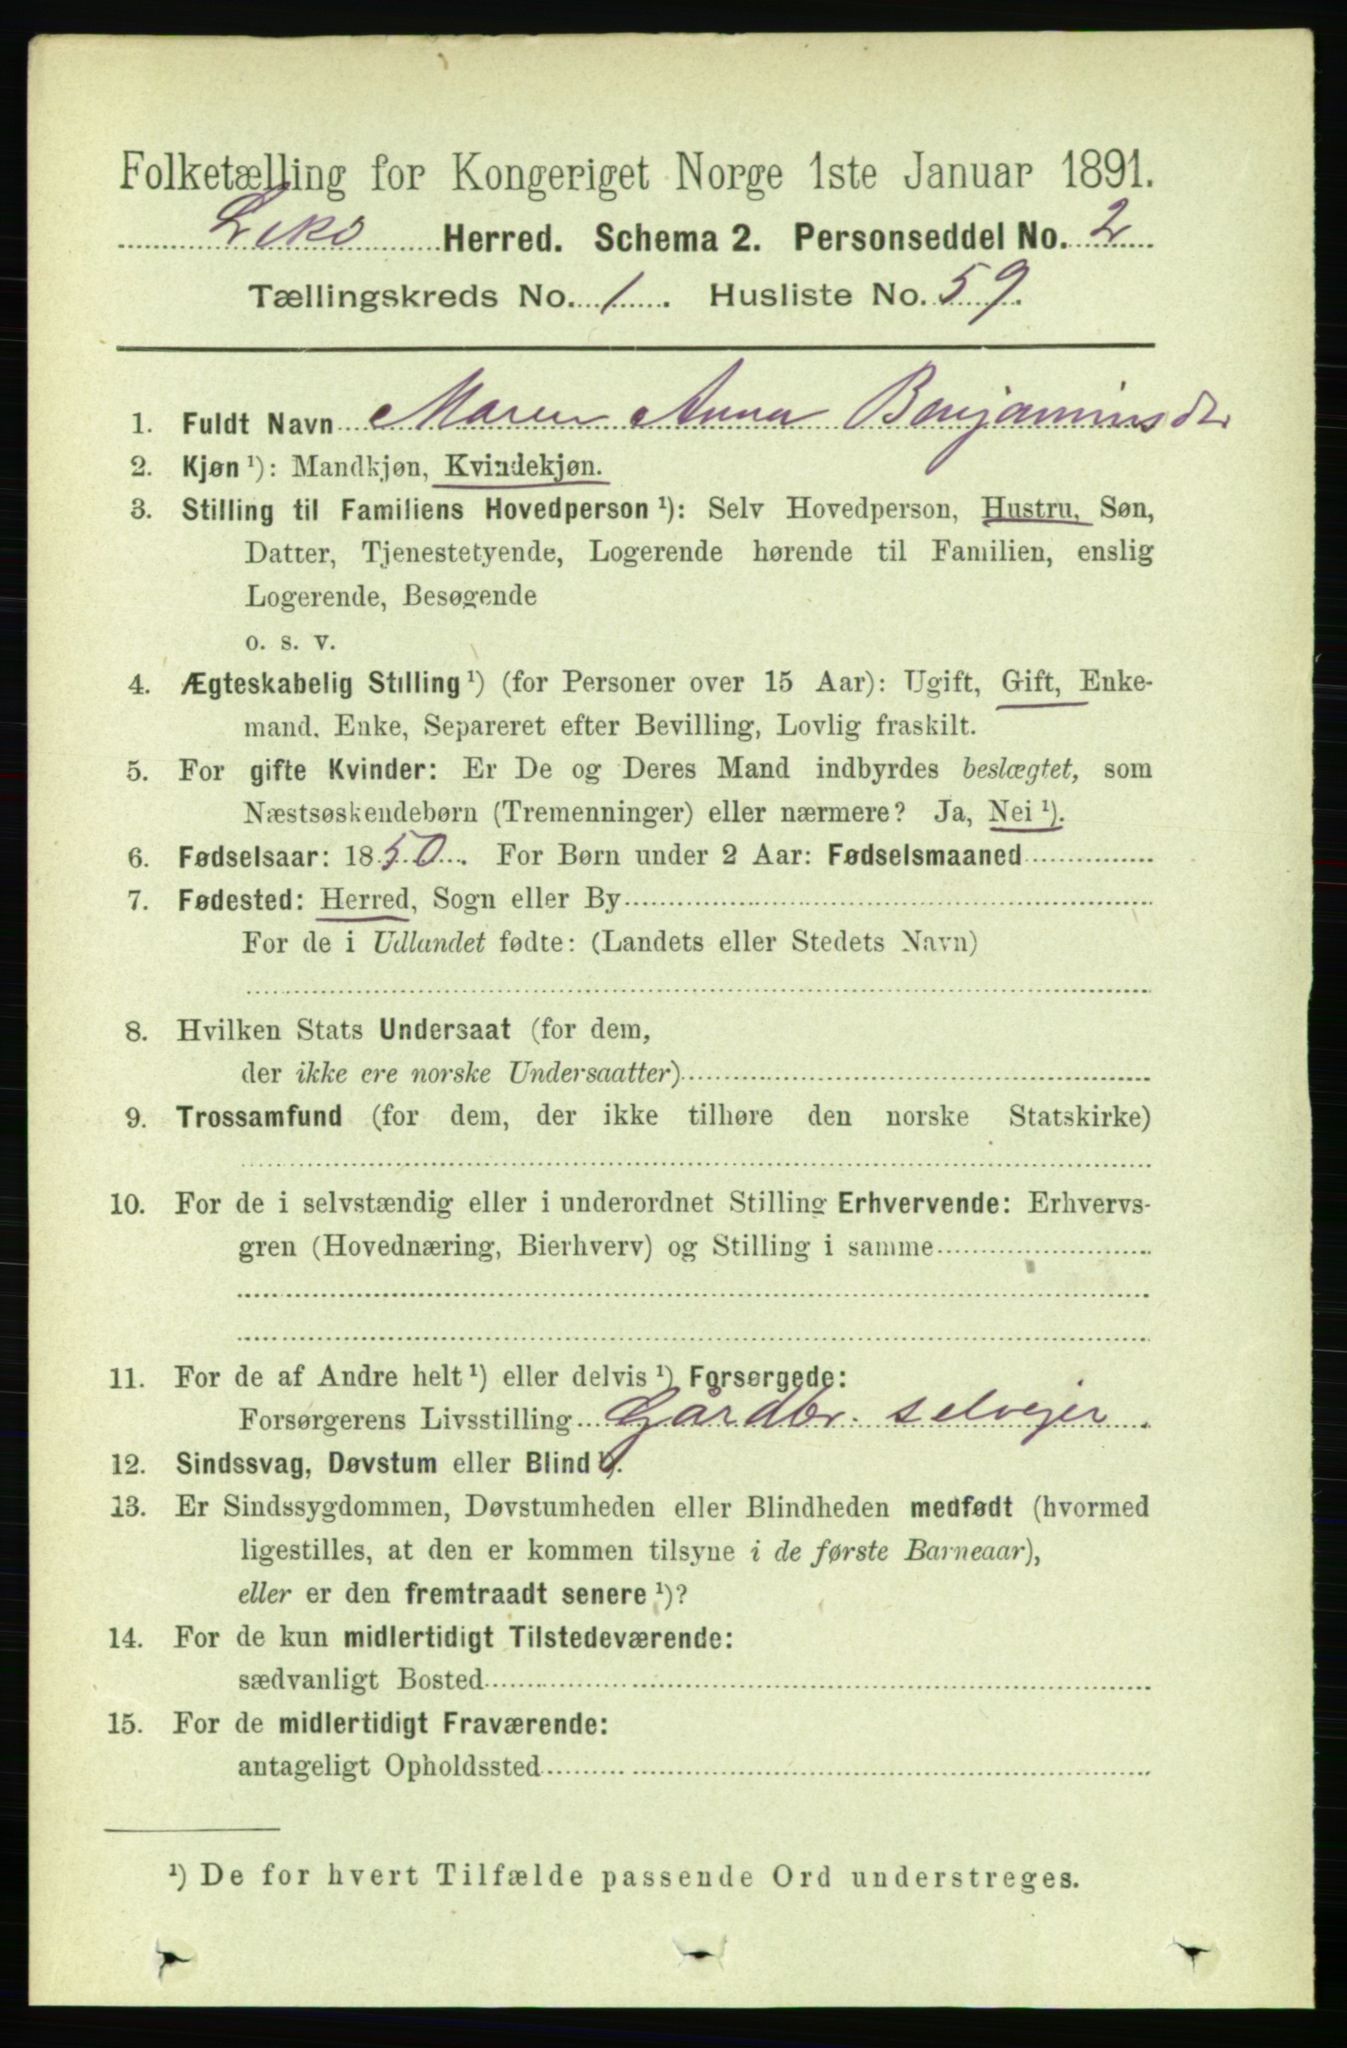 Folketælling for Kongeriget Norge 1ste Januar 1891.
Leko Herred. Schema 2. Personseddel No. 2
Tællingskreds No. 1. Husliste No. 59.
1. Fuldt Navn Maren Anna Benjaminsdr
2. Kjøn ¹): Mandkjøn, Kvindekjøn.
3. Stilling til Familiens Hovedperson ¹): Selv Hovedperson, Hustru, Søn,
Datter, Tjenestetyende, Logerende hørende til Familien, enslig
Logerende, Besøgende
o. s. v.
4. Ægteskabelig Stilling ¹) (for Personer over 15 Aar): Ugift, Gift, Enke-
mand, Enke, Separeret efter Bevilling, Lovlig fraskilt.
5. For gifte Kvinder: Er De og Deres Mand indbyrdes beslægtet, som
Næstsøskendebørn (Tremenninger) eller nærmere? Ja, Nei ¹).
6. Fødselsaar: 1850. For Børn under 2 Aar: Fødselsmaaned
7. Fødested: Herred, Sogn eller By
For de i Udlandet fødte: (Landets eller Stedets Navn)
8. Hvilken Stats Undersaat (for dem,
der ikke ere norske Undersaatter)
9. Trossamfund (for dem, der ikke tilhøre den norske Statskirke)
10. For de i selvstændig eller i underordnet Stilling Erhvervende: Erhvervs-
gren (Hovednæring, Bierhverv) og Stilling i samme
11. For de af Andre helt ¹) eller delvis ¹) Forsørgede:
Forsørgerens Livsstilling Gårdbr. selvejer.
12. Sindssvag, Døvstum eller Blind ¹).
13. Er Sindssygdommen, Døvstumheden eller Blindheden medfødt (hvormed
ligestilles, at den er kommen tilsyne i de første Barneaar),
eller er den fremtraadt senere ¹)?
14. For de kun midlertidigt Tilstedeværende:
sædvanligt Bosted
15. For de midlertidigt Fraværende:
antageligt Opholdssted
¹) De for hvert Tilfælde passende Ord understreges.